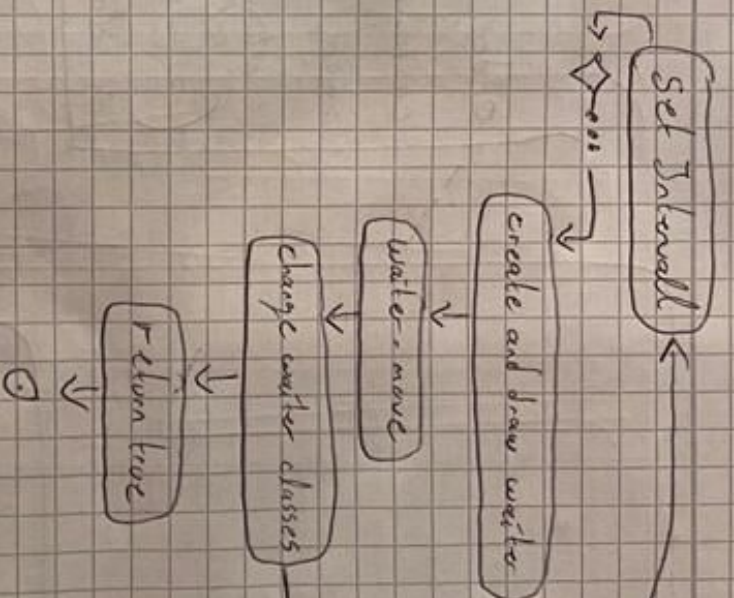 Set Intervall
create and draw waiter
waiter.move
change waiter classes
return true